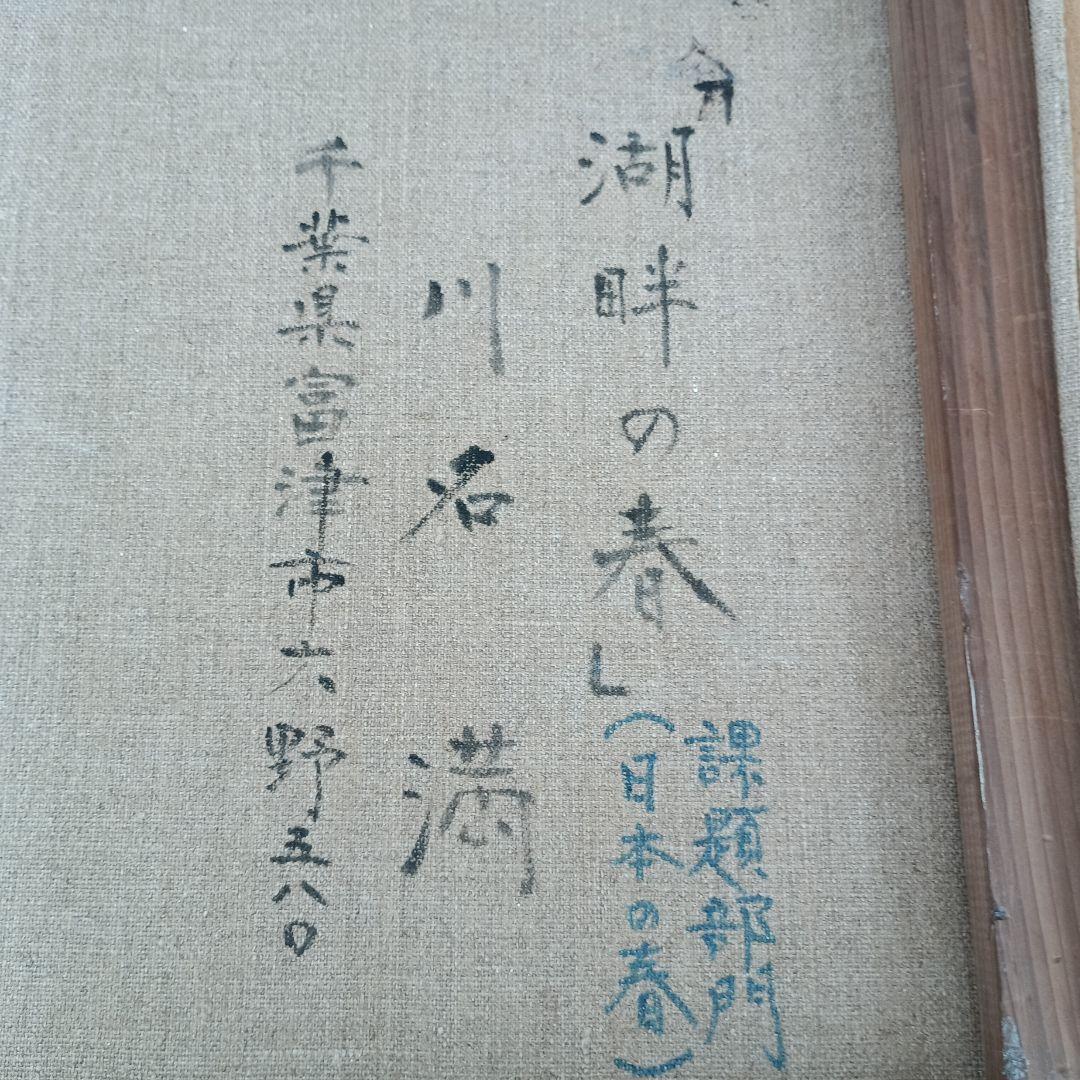 湖畔の春」
課題部門
(日本の春)
川名満
千葉県富津市六野五八〇